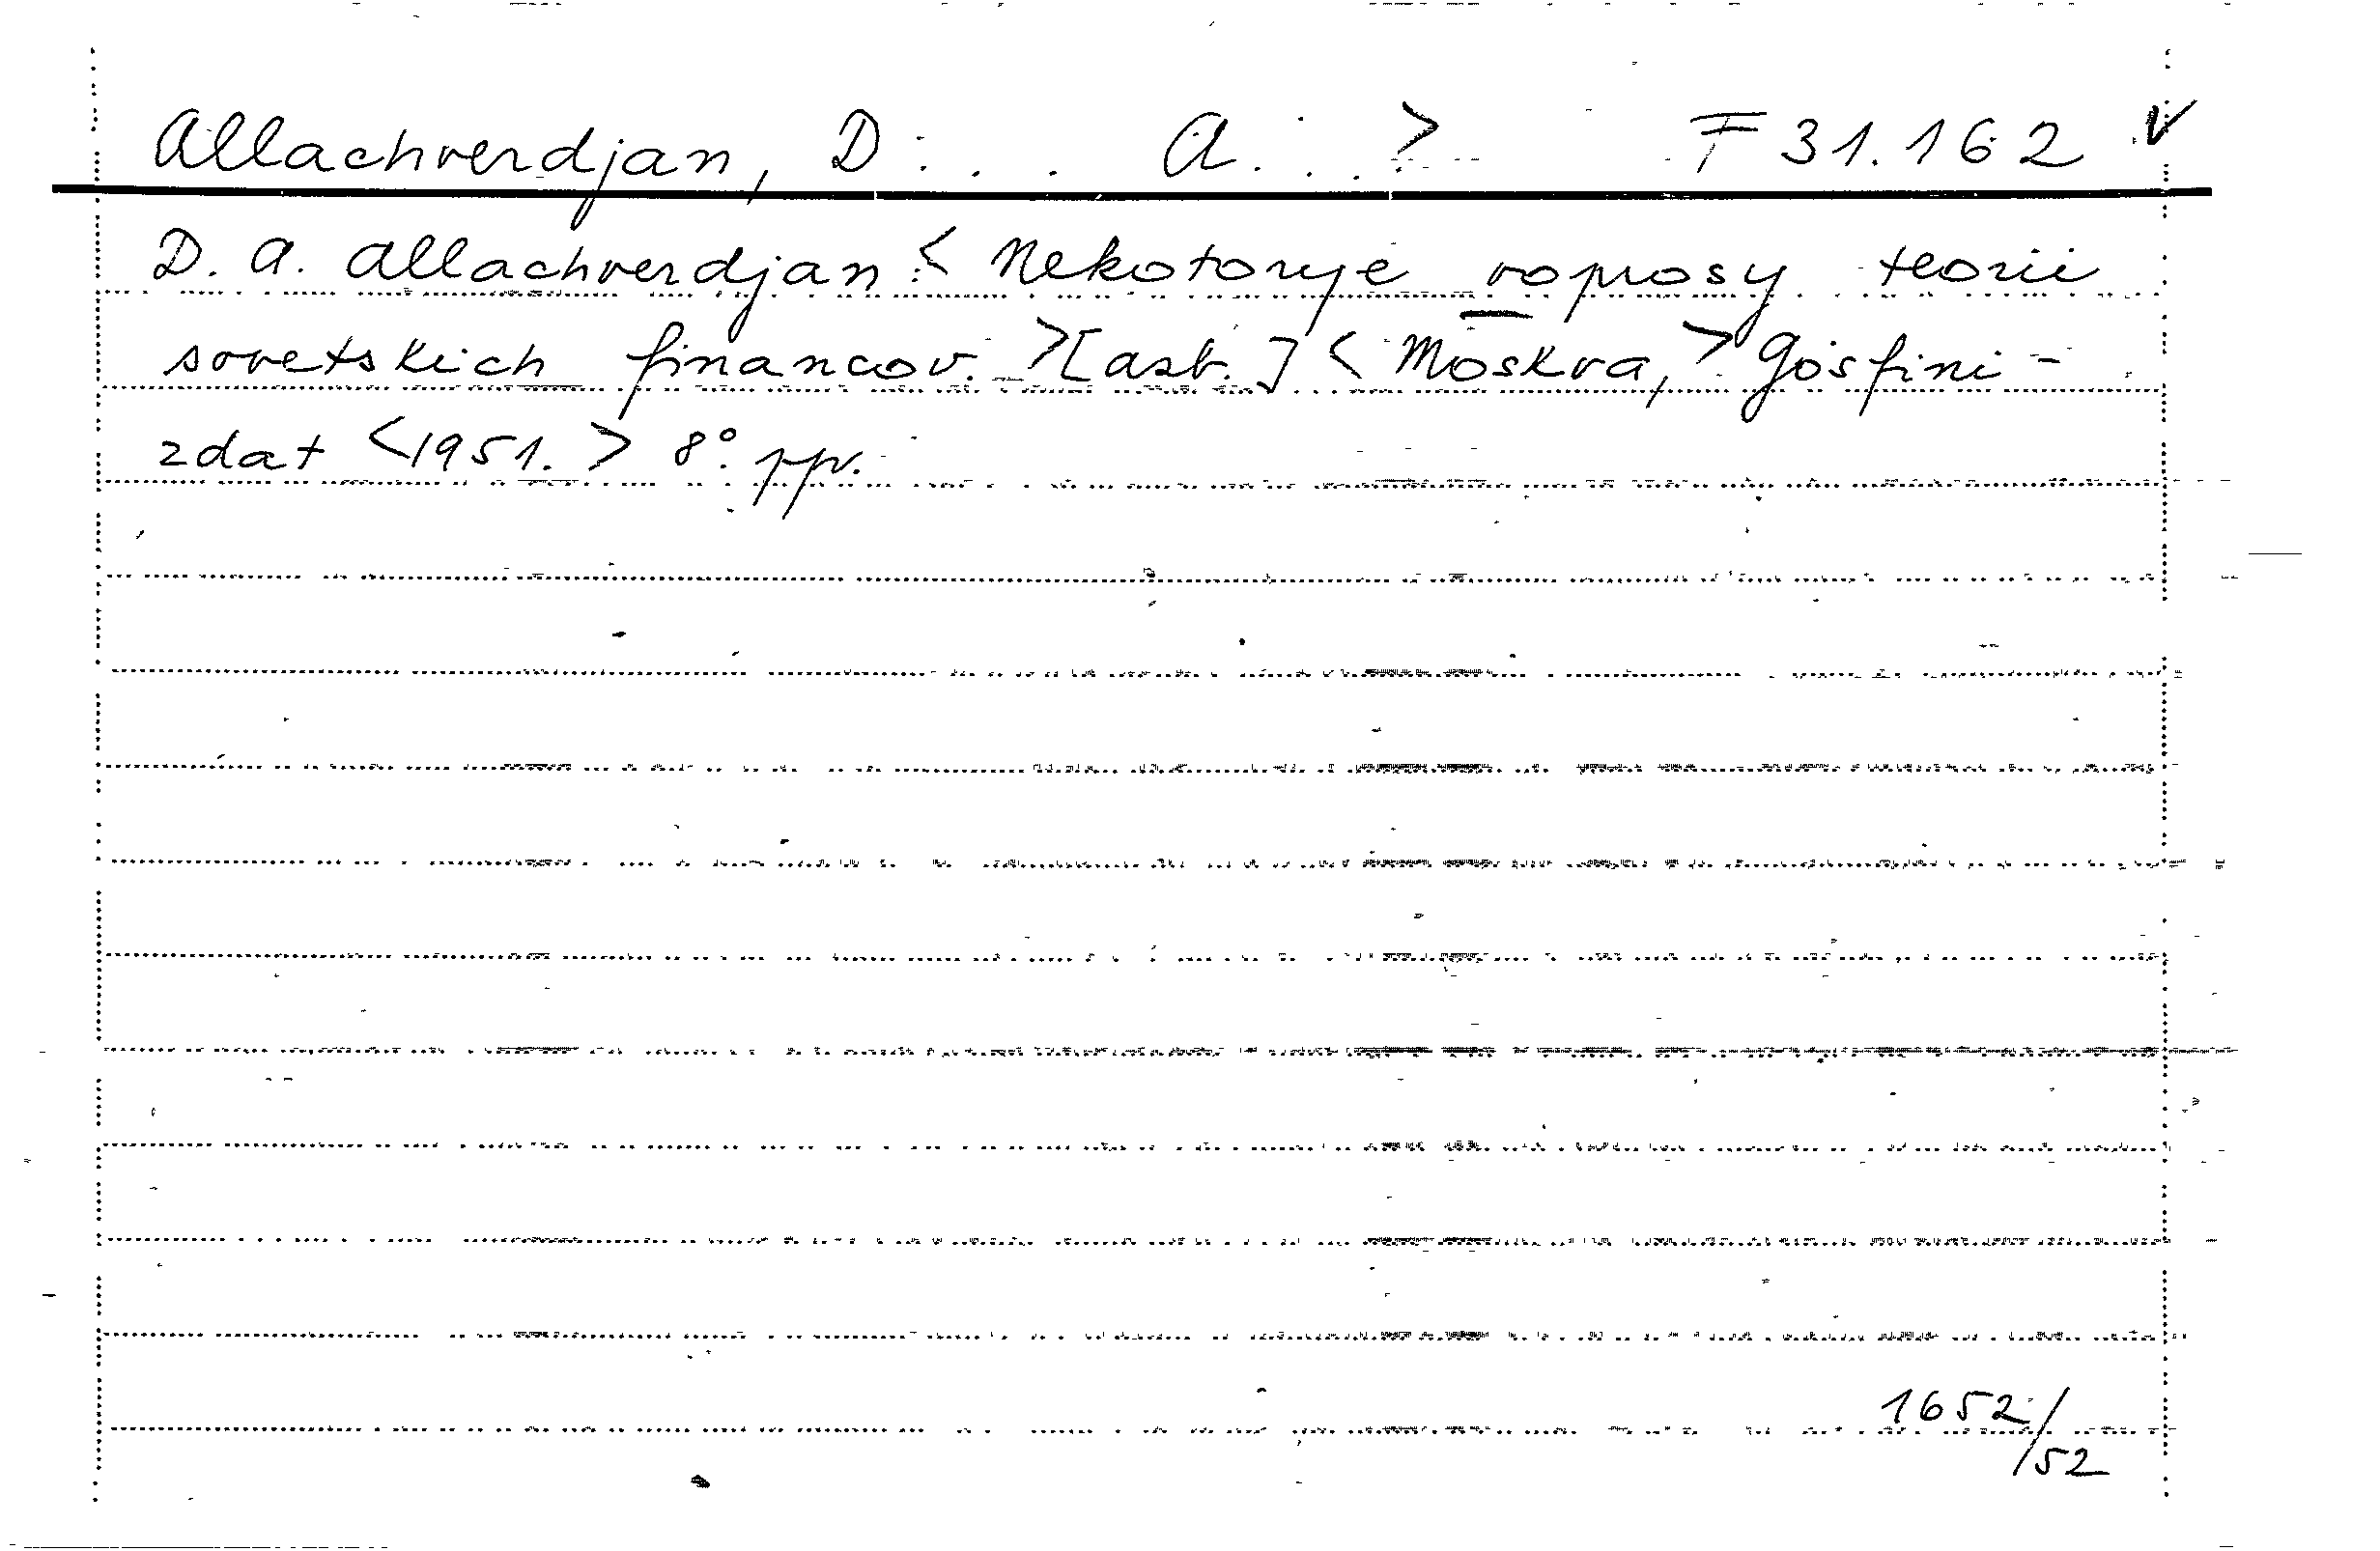 Allachverdjan, D... A...> F 31.162 ✓
D. A. Allachverdjan: < Nekotorye voprosy teorii
sovetskich financov. > [azb.] < Moskva, > Gosfini-
zdat <1951.> 8° pp.
1652/
52